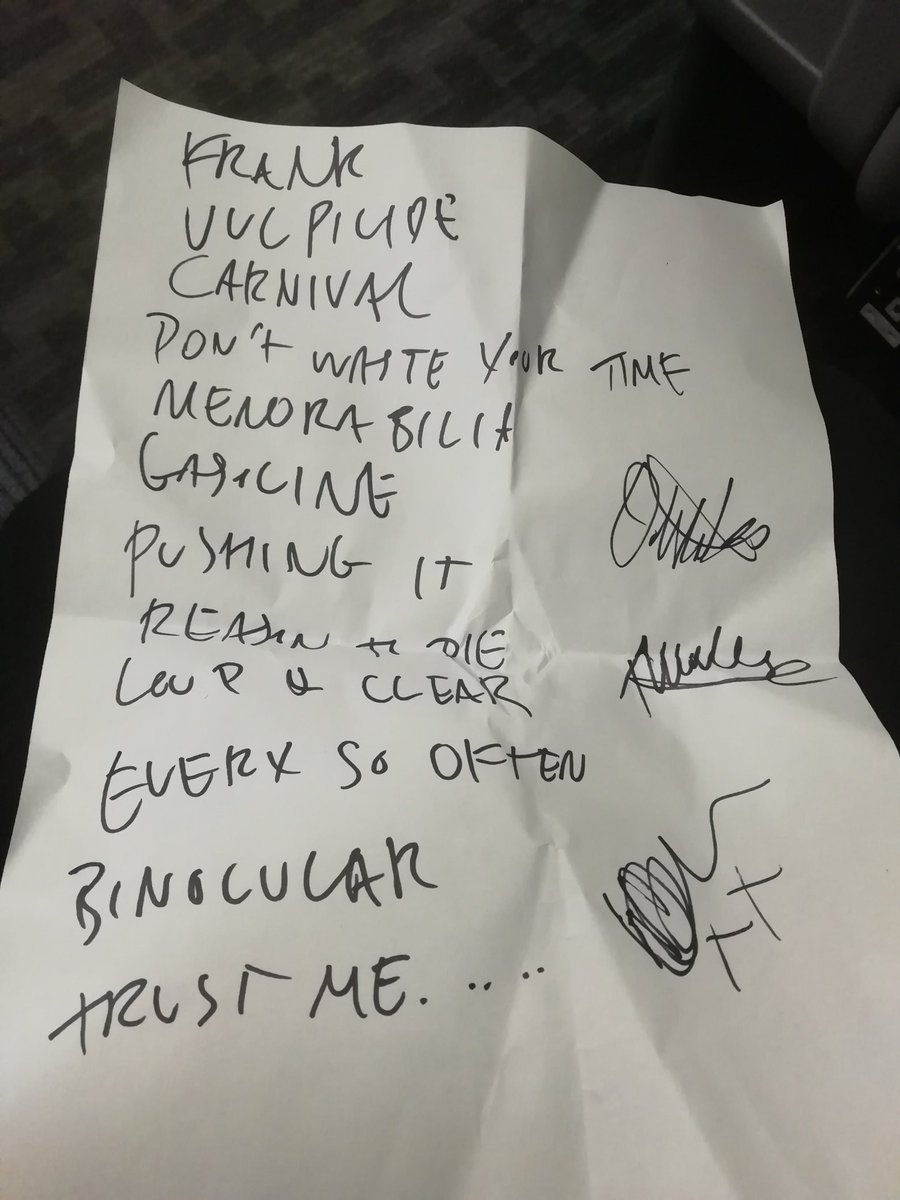 FRANK
VULPICIDE
CARNIVAL
DON'T WASTE YOUR TIME
MEMORABILIA
GASOLINE
PUSHING IT
REASON TO DIE
LOUD & CLEAR
EVERY SO OFTEN
BINOCULAR
TRUST ME.....